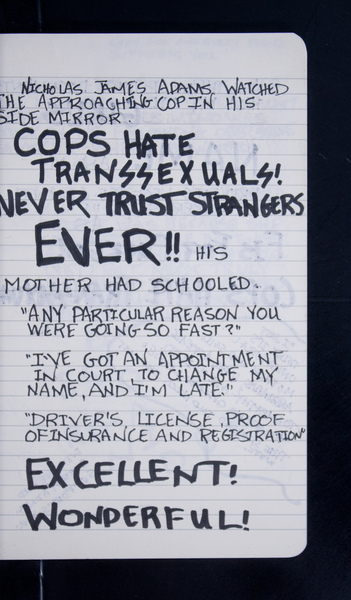 NICHOLAS JAMES ADAMS WATCHED
THE APPROACHING COP IN HIS
SIDE MIRROR.
COPS HATE
TRANSSEXUALS!
NEVER TRUST STRANGERS
EVER!! HIS
MOTHER HAD SCHOOLED.
"ANY PARTICULAR REASON YOU
WERE GOING SO FAST?"
"I'VE GOT AN APPOINTMENT
IN COURT, TO CHANGE MY
NAME, AND I'M LATE."
"DRIVER'S LICENSE, PROOF
OF INSURANCE AND REGISTRATION"
EXCELLENT!
WONDERFUL!